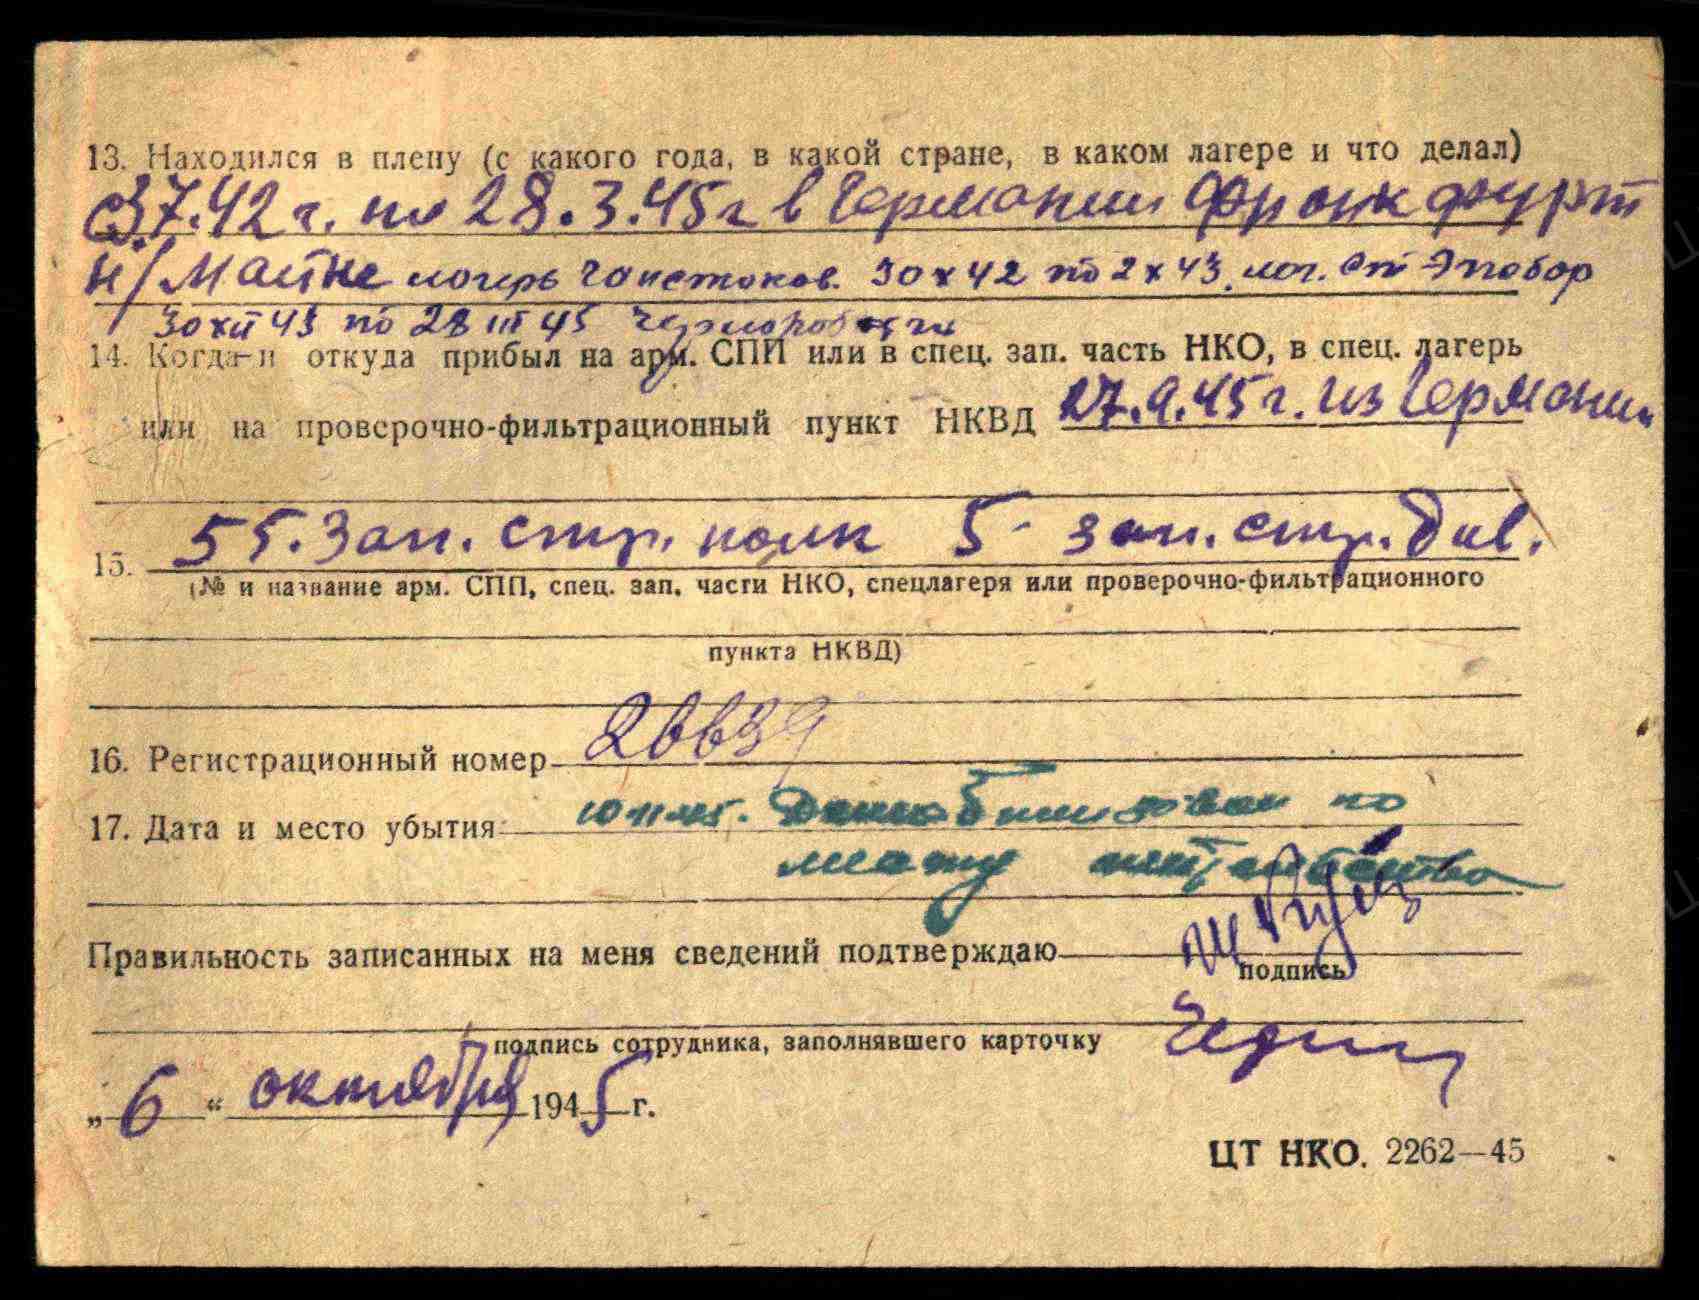 13. Находился в плену (с какого года, в какой стране, в каком лагере и что делал)
с 3.7.42 г. по 28.3.45 г в Германии Франкфурт
н/Майне лагерь 30 х 42 по 2 х 43. лаг.
30 XII 43 по 28 III 45 чернорабочим
14. Когда и откуда прибыл на арм. СПП или в спец. зап. часть НКО, в спец. лагерь
или на проверочно-фильтрационный пункт НКВД 27.9.45 г. из Германии
55. Зап. стр. полк 5- зап. стр. див.
15.
(№ и название арм. СПП, спец. зап. части НКО, спецлагеря или проверочно-фильтрационного
пункта НКВД)
16. Регистрационный номер 26639
17. Дата и место убытия: 10 11 45. Демобилизован по
месту жительства
Правильность записанных на меня сведений подтверждаю
подпись
подпись сотрудника, заполнявшего карточку
„6“ октября 1945 г.
ЦТ НКО. 2262—45